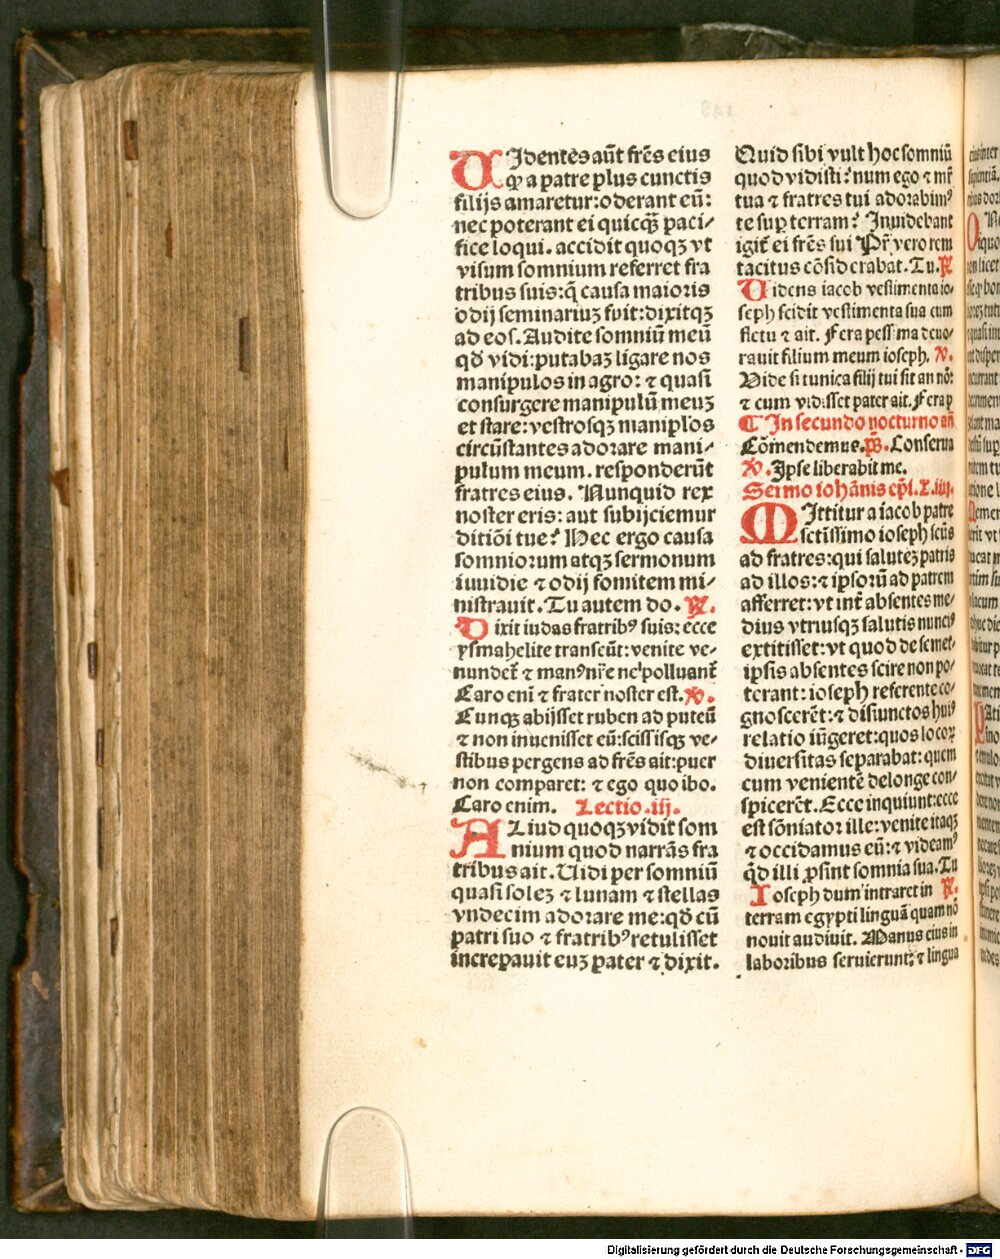 UIdentes aūt frēs eius
ꝙ a patre plus cunctis
filijs amaretur: oderant eū:
nec poterant ei quicqꝫ paci⸗
fice loqui. accidit quoqꝫ vt
visum somnium referret fra
tribus suis: q̄ causa maioris
odij seminariuꝫ fuit: dixitqꝫ
ad eos. Audite somniū meū
qď vidi: putabaꝫ ligare nos
manipulos in agro: ⁊ quasi
consurgere manipulū meuꝫ
et stare: vestrosqꝫ maniplos
circūstantes adorare mani⸗
pulum meum. responderūt
fratres eius. Nunquid rex
noster eris: aut subijciemur
ditiōi tue? Hec ergo causa
somniorum atqꝫ sermonum
inuidie ⁊ odij fomitem mi⸗
nistrauit. Tu autem do. ℟.
Dixit iudas fratribꝰ suis: ecce
ysmahelite transeūt: venite ve⸗
nundet᷑ ⁊ manꝰ nr̄e nō polluant᷑
Caro eni ⁊ frater noster est. ℣.
Cunqꝫ abijsset ruben ad puteū
⁊ non inuenisset eū: scissisqꝫ ve⸗
stibus pergens ad frēs ait: puer
non comparet: ⁊ ego quo ibo.
Caro enim. Lectio .iij.
ALiud quoqꝫ vidit som
nium quod narrās fra
tribus ait. Uidi per somniū
quasi soleꝫ ⁊ lunam ⁊ stellas
vndecim adorare me: qď cū
patri suo ⁊ fratribꝰ retulisset
increpauit euꝫ pater ⁊ dixit.
Quid sibi vult hoc somniū
quod vidisti? num ego ⁊ mr̄
tua ⁊ fratres tui adorabimꝰ
te suꝑ terram? Inuidebant
igit᷑ ei frēs sui Pr̄ vero rem
tacitus cōsiderabat. Tu. ℟
Uidens iacob vestimenta io⸗
seph scidit vestimenta sua cum
fletu ⁊ ait. Fera pessima deuo⸗
rauit filium meum ioseph. ℣.
Vide si tunica filij tui sit an nō:
⁊ cum vidisset pater ait. Fera p
¶ In secundo nocturno añ
Cōmendemus. p̄s. Conserua
℣. Ipse liberabit me.
Sermo iohānis ep̄i. L. iiij.
MIttitur a iacob patre
sctissimo ioseph scūs
ad fratres: qui saluteꝫ patris
ad illos: ⁊ ipsorū ad patrem
afferret: vt int᷑ absentes me⸗
dius vtriusqꝫ salutis nunciꝰ
extitisset: vt quod de semet⸗
ipsis absentes scire non po⸗
terant: ioseph referente co⸗
gnoscerēt: ⁊ disiunctos huiꝰ
relatio iūgeret: quos locoꝝ
diuersitas separabat: quem
cum venientē de longe con⸗
spicerēt. Ecce inquiunt: ecce
est sōniator ille: venite itaqꝫ
⁊ occidamus eū: ⁊ videamꝰ
qď illi ꝓsint somnia sua. Tu
Ioseph dum intraret in ℟.
terram egypti linguā quam nō
nouit audiuit. Manus eius in
laboribus seruierunt: ⁊ lingua
Digitalisierung gefördert durch die Deutsche Forschungsgemeinschaft - DFG